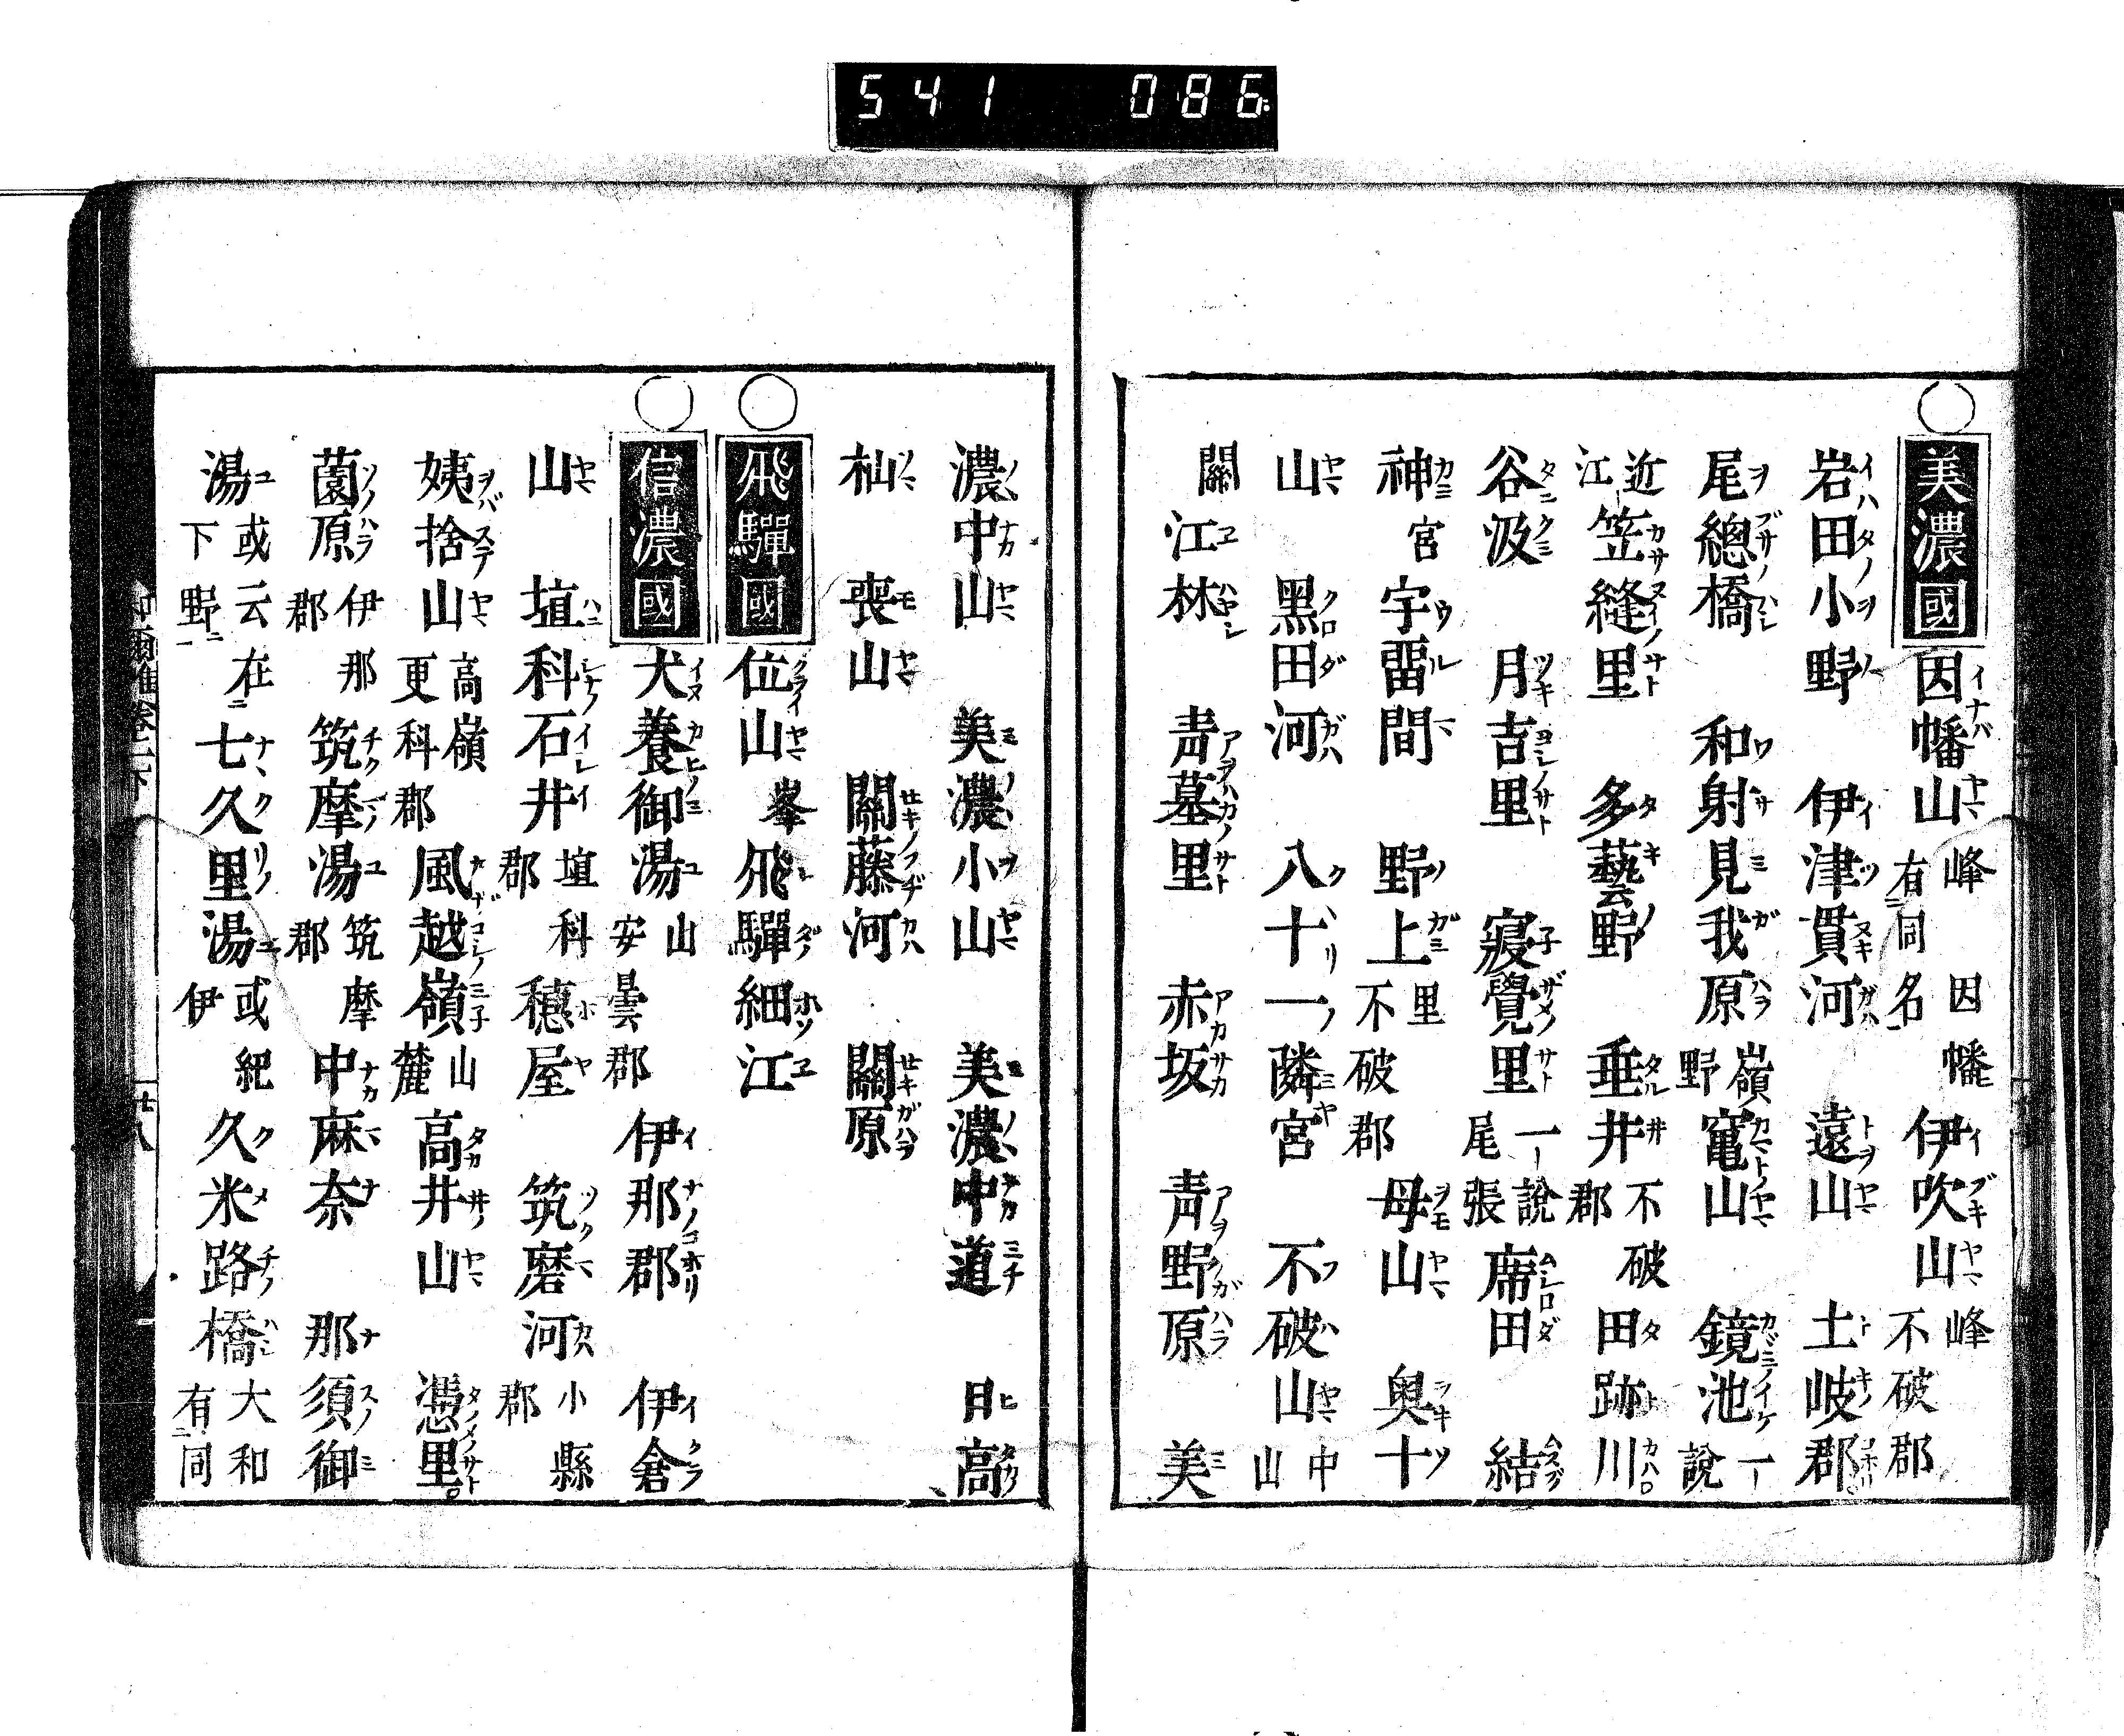 541 086
美濃國 因幡山 峰因幡有同名 伊吹山 峰不破郡
岩田小野 伊津貫河 遠山 土岐郡
尾總橋 和射見我原 嶺野 竃山 鏡池 一說
近江 笠縫里 多藝野 垂井 不破郡 田跡川
谷汲 月吉里 寢覺里 一說尾張 席田 結
神 宮 宇畱間 野上 里不破郡 母山 奥十
山 黑田河 八十一隣宮 不破山 中山
關 江林 青墓里 赤坂 青野原 美
濃中山 美濃小山 美濃中道 日高
杣 喪山 關藤河 關原
飛驒國 位山 峯 飛驒細江
信濃國 犬養御湯 山安曇郡 伊那郡 伊倉
山 埴科石井 埴科郡 穗屋 筑磨河 小縣郡
姨捨山 高嶺更科郡 風越嶺 山麓 高井山 憑里
薗原 伊那郡 筑摩湯 筑摩郡 中麻奈 那須御
湯 或云在下野 七久里湯 或紀伊 久米路橋 大和有同
爾雅卷二下 廿八